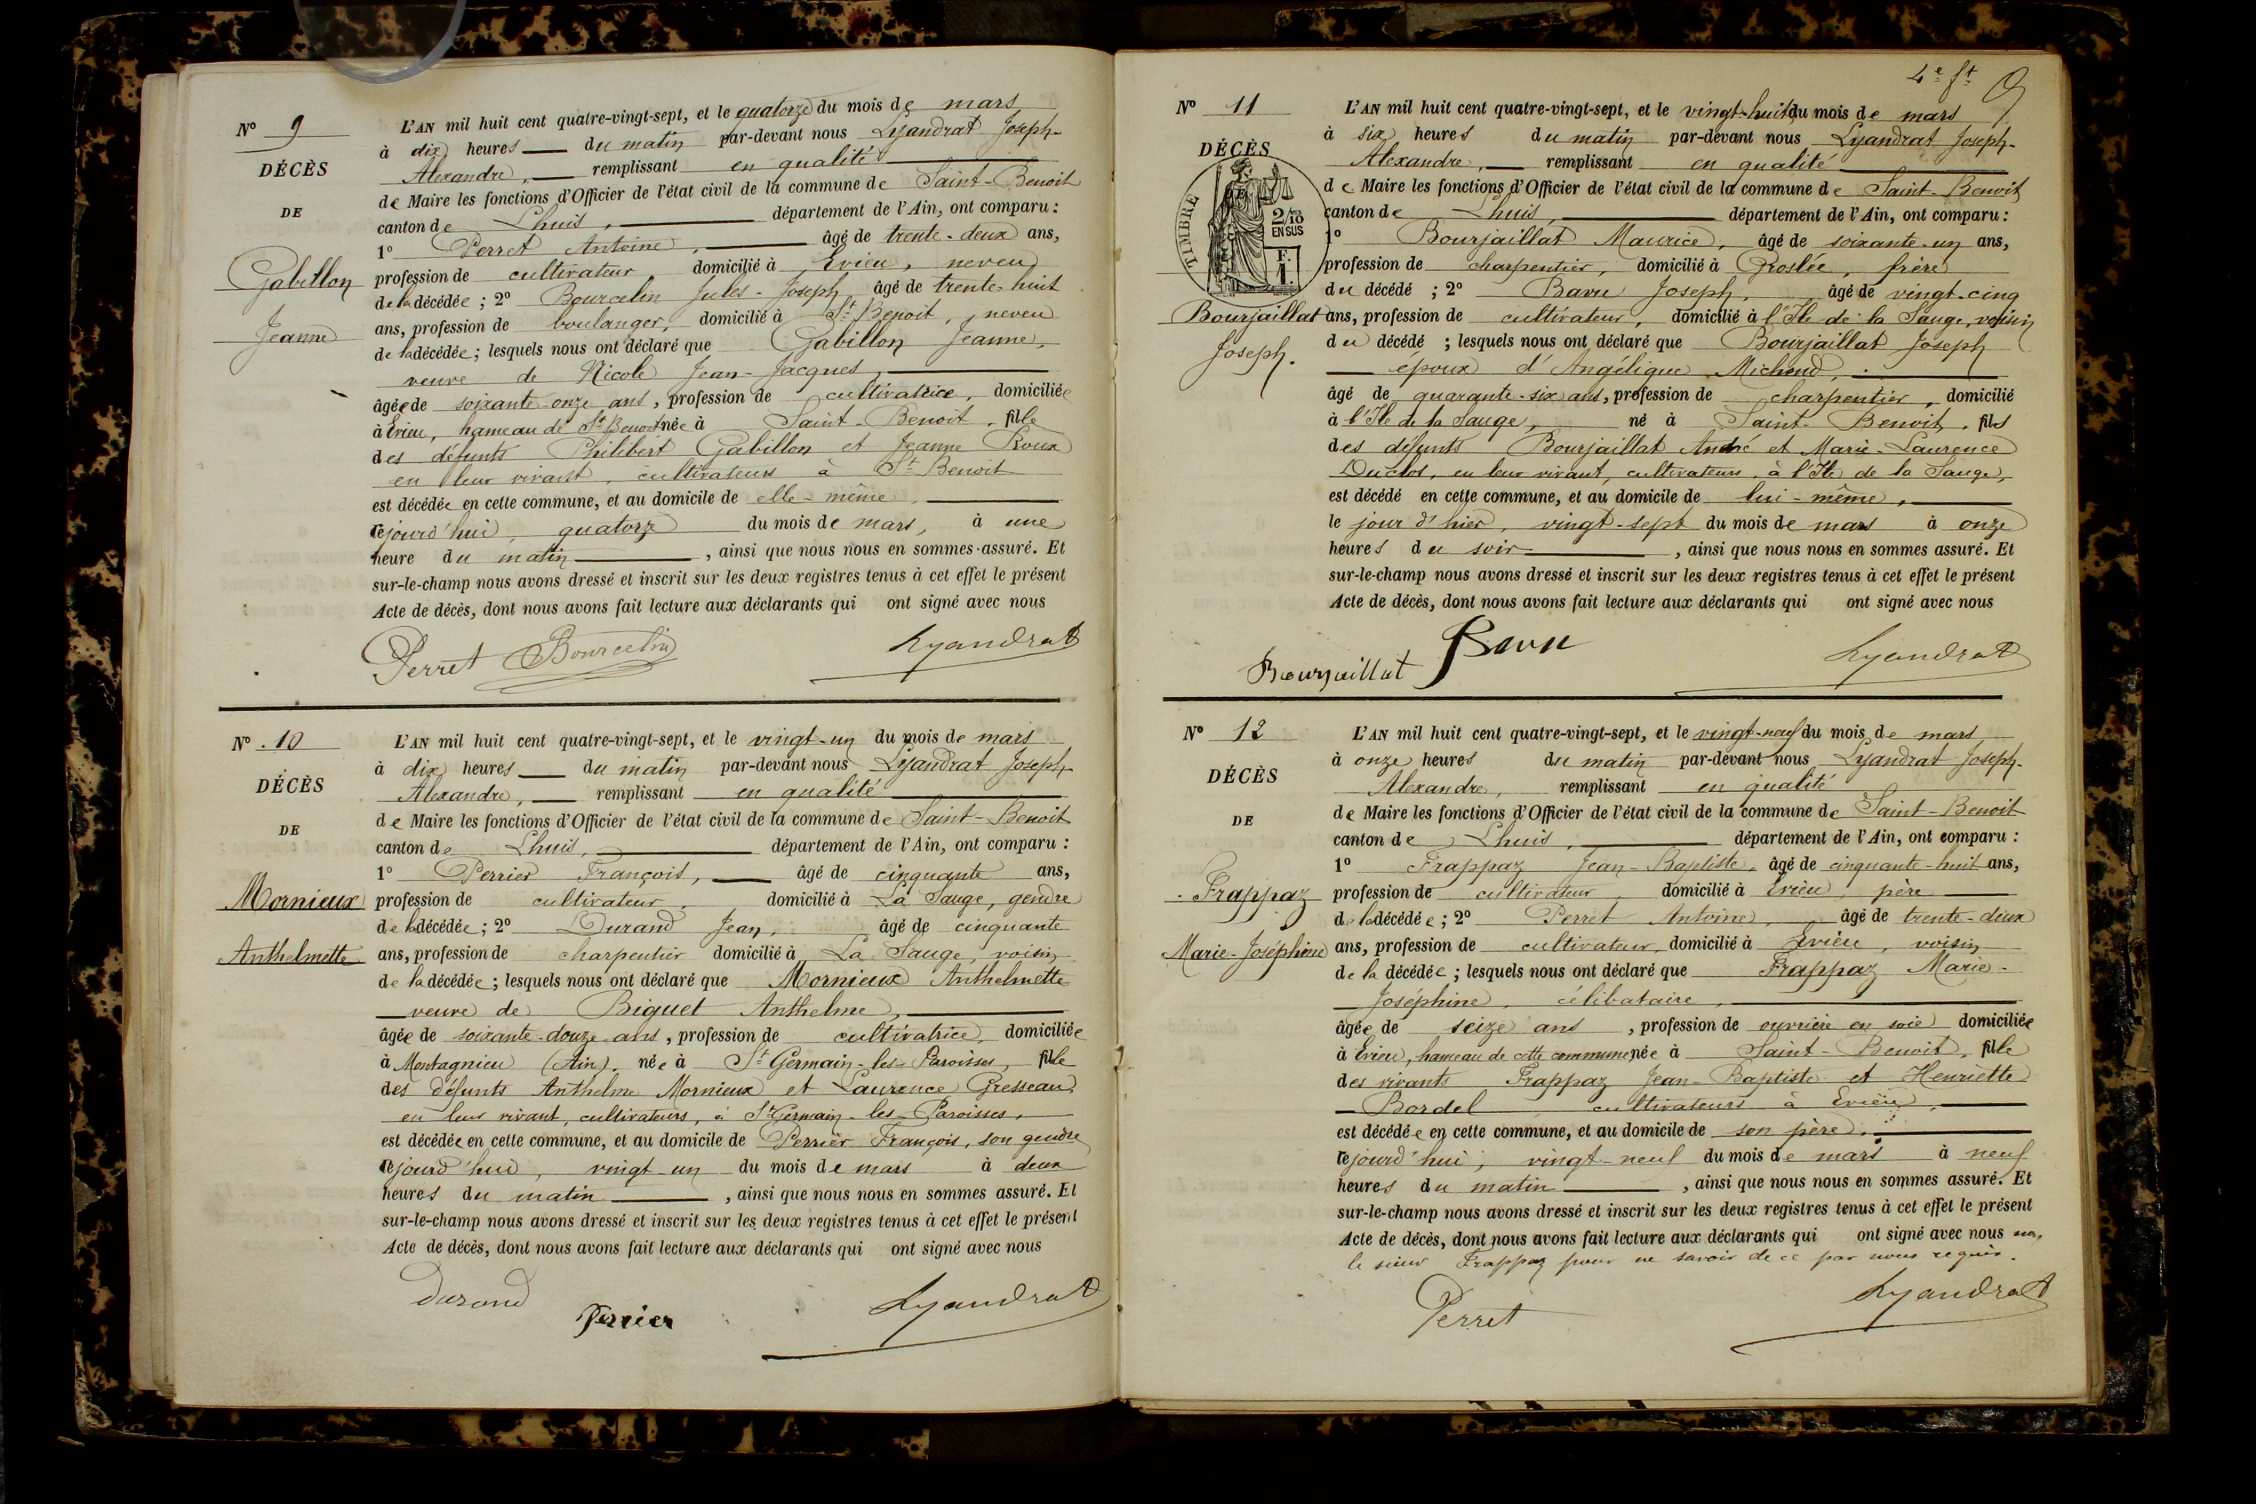 Nº 9
DÉCÈS
DE
Gabillon
Jeanne
L'AN mil huit cent quatre-vingt-sept, et le quatorze du mois de mars
à dix heures du matin par-devant nous Lyandrat Joseph-
Alexandre, remplissant en qualité
de Maire les fonctions d'Officier de l'état civil de la commune de Saint-Benoit
canton de Lhuis, département de l'Ain, ont comparu :
1º Perret Antoine, âgé de trente-deux ans,
profession de cultivateur, domicilié à Evieu, neveu
de la décédée ; 2º Bourcelin Jules-Joseph âgé de trente-huit
ans, profession de boulanger, domicilié à St Benoit, neveu
de la décédée ; lesquels nous ont déclaré que Gabillon Jeanne,
veuve de Nicole Jean-Jacques,
âgée de soixante-onze ans, profession de cultivatrice, domiciliée
à Evieu, hameau de St Benoit née à Saint-Benoit, fille
des défunts Philibert Gabillon et Jeanne Roux
en leur vivant, cultivateurs à St Benoit
est décédée en cette commune, et au domicile de elle-même,
cejourd'hui, quatorze du mois de mars, à une
heure du matin, ainsi que nous nous en sommes assuré. Et
sur-le-champ nous avons dressé et inscrit sur les deux registres tenus à cet effet le présent
Acte de décès, dont nous avons fait lecture aux déclarants qui ont signé avec nous
Perret Bourcelin Lyandrat
Nº 10
DÉCÈS
DE
Mornieux
Anthelmette
L'AN mil huit cent quatre-vingt-sept, et le vingt-un du mois de mars
à dix heures du matin par-devant nous Lyandrat Joseph-
Alexandre, remplissant en qualité
de Maire les fonctions d'Officier de l'état civil de la commune de Saint-Benoit
canton de Lhuis, département de l'Ain, ont comparu :
1º Perrier François, âgé de cinquante ans,
profession de cultivateur, domicilié à La Sauge, gendre
de la décédée ; 2º Durand Jean, âgé de cinquante
ans, profession de charpentier domicilié à La Sauge, voisin
de la décédée ; lesquels nous ont déclaré que Mornieux Anthelmette
veuve de Biguet Anthelme,
âgée de soixante-douze ans, profession de cultivatrice, domiciliée
à Montagnieu (Ain), née à St Germain-les-Paroisses, fille
des défunts Anthelme Mornieux et Laurence Gresseau,
en leur vivant, cultivateurs, à St Germain-les-Paroisses,
est décédée en cette commune, et au domicile de Perrier François, son gendre
cejourd'hui, vingt-un du mois de mars à deux
heures du matin, ainsi que nous nous en sommes assuré. Et
sur-le-champ nous avons dressé et inscrit sur les deux registres tenus à cet effet le présent
Acte de décès, dont nous avons fait lecture aux déclarants qui ont signé avec nous
Durand Perrier Lyandrat
4e ft 9
Nº 11
DÉCÈS
TIMBRE
2/10
EN SUS
F.
1.
Bourjaillat
Joseph.
L'AN mil huit cent quatre-vingt-sept, et le vingt-huit du mois de mars
à six heures du matin par-devant nous Lyandrat Joseph-
Alexandre, remplissant en qualité
de Maire les fonctions d'Officier de l'état civil de la commune de Saint-Benoit
canton de Lhuis, département de l'Ain, ont comparu :
1º Bourjaillat Maurice, âgé de soixante-un ans,
profession de charpentier, domicilié à Groslée, frère
du décédé ; 2º Bavu Joseph, âgé de vingt-cinq
ans, profession de cultivateur, domicilié à l'Ile de la Sauge, voisin
du décédé ; lesquels nous ont déclaré que Bourjaillat Joseph
époux d'Angélique Michoud,
âgé de quarante-six ans, profession de charpentier, domicilié
à l'Ile de la Sauge, né à Saint-Benoit, fils
des défunts Bourjaillat André et Marie-Laurence
Duclos, en leur vivant, cultivateurs à l'Ile de la Sauge,
est décédé en cette commune, et au domicile de lui-même,
le jour d'hier, vingt-sept du mois de mars à onze
heures du soir, ainsi que nous nous en sommes assuré. Et
sur-le-champ nous avons dressé et inscrit sur les deux registres tenus à cet effet le présent
Acte de décès, dont nous avons fait lecture aux déclarants qui ont signé avec nous
Bourjaillat Bavu Lyandrat
Nº 12
DÉCÈS
DE
Frappaz
Marie-Joséphine
L'AN mil huit cent quatre-vingt-sept, et le vingt-neuf du mois de mars
à onze heures du matin par-devant nous Lyandrat Joseph-
Alexandre, remplissant en qualité
de Maire les fonctions d'Officier de l'état civil de la commune de Saint-Benoit
canton de Lhuis, département de l'Ain, ont comparu :
1º Frappaz Jean-Baptiste, âgé de cinquante-huit ans,
profession de cultivateur, domicilié à Evieu, père
de la décédée ; 2º Perret Antoine, âgé de trente-deux
ans, profession de cultivateur, domicilié à Evieu, voisin
de la décédée ; lesquels nous ont déclaré que Frappaz Marie-
Joséphine, célibataire,
âgée de seize ans, profession de ouvrière en soie domiciliée
à Evieu, hameau de cette commune née à Saint-Benoit, fille
des vivants Frappaz Jean-Baptiste et Henriette
Bordel cultivateurs à Evieu,
est décédée en cette commune, et au domicile de son père,
cejourd'hui, vingt-neuf du mois de mars à neuf
heures du matin, ainsi que nous nous en sommes assuré. Et
sur-le-champ nous avons dressé et inscrit sur les deux registres tenus à cet effet le présent
Acte de décès, dont nous avons fait lecture aux déclarants qui ont signé avec nous non
le sieur Frappaz pour ne savoir de ce par nous requis.
Perret Lyandrat